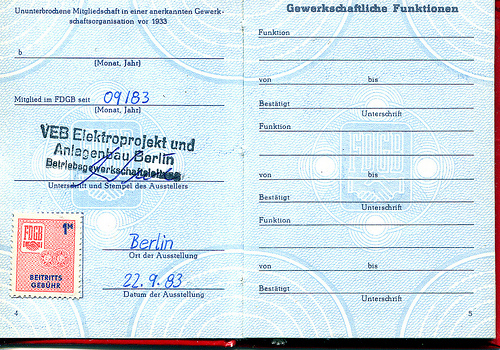 Ununterbrochene Mitgliedschaft in einer anerkannten Gewerk-
schaftsorganisation vor 1933
b
(Monat, Jahr)
Mitglied im FDGB seit 09/83
(Monat, Jahr)
VEB Elektroprojekt und
Anlagenbau Berlin
Betriebsgewerkschaftsleitung
Unterschrift und Stempel des Ausstellers
FDGB
1M
BEITRITTS
GEBÜHR
Berlin
Ort der Ausstellung
22.9.83
Datum der Ausstellung
4
Gewerkschaftliche Funktionen
Funktion
von bis
Bestätigt
Unterschrift
Funktion
von bis
Bestätigt
Unterschrift
Funktion
von bis
Bestätigt
Unterschrift
5
FDGB